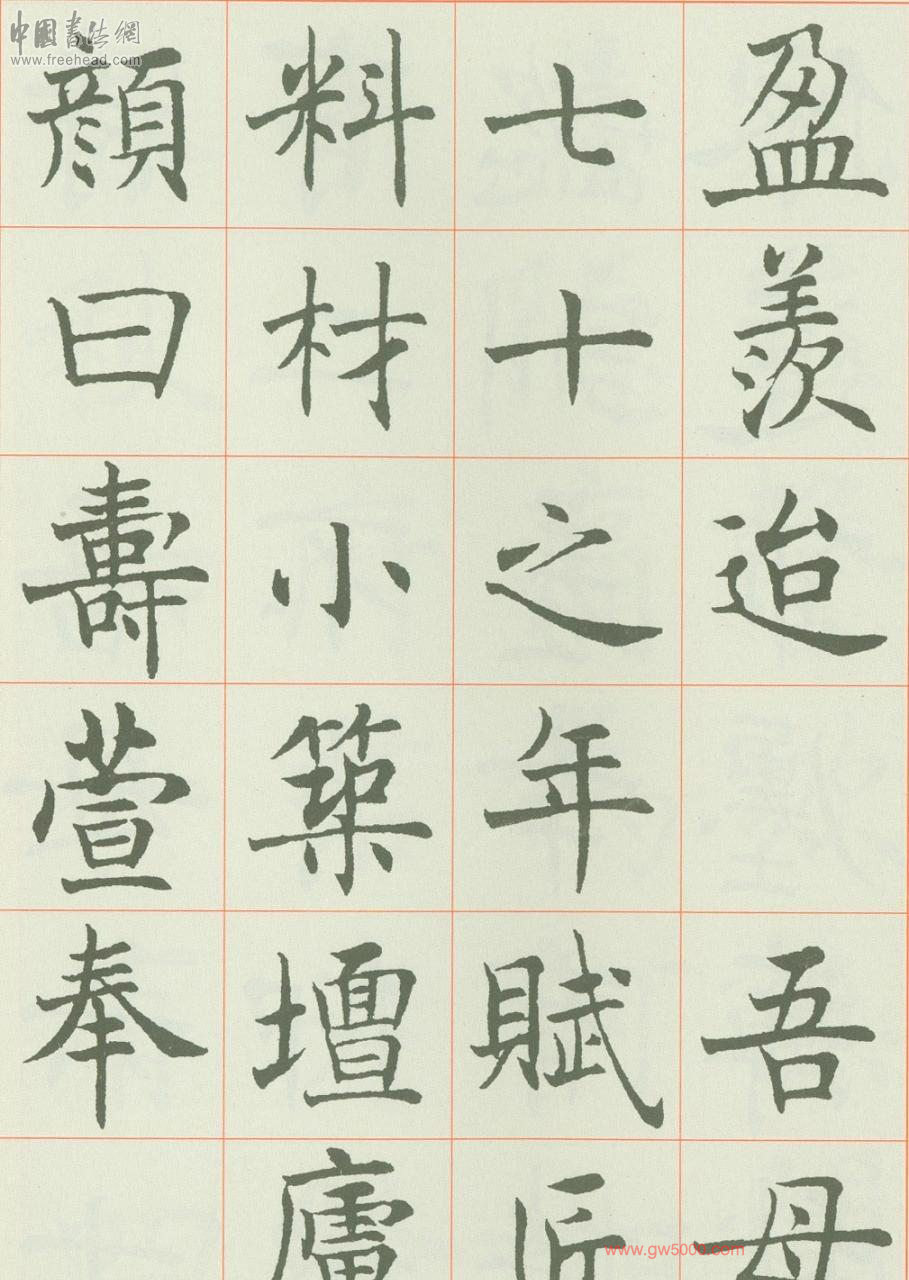 盈羨迨 吾母
七十之年賦匠
料材小築壇廬
顏曰壽萱奉
中國書法網
www.freehead.com
www.gw5000.com